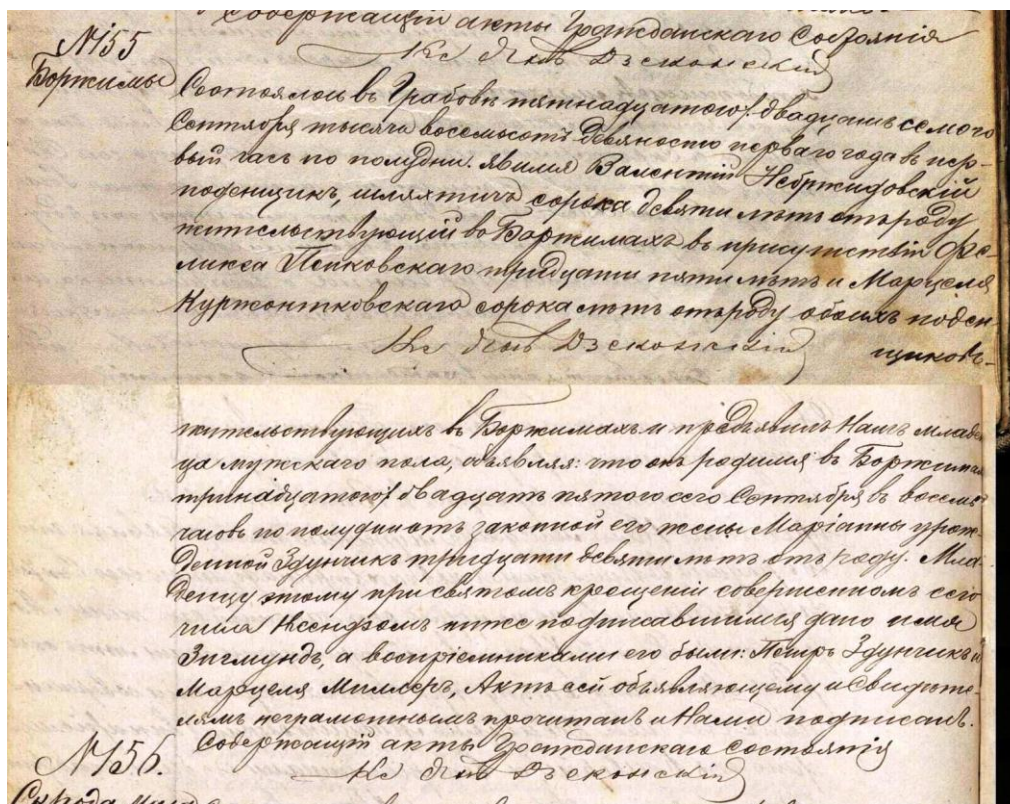 Содержащій акты Гражданскаго Состоянія
№155
Боржимы
Состоялось въ Грабовѣ пятнадцатого/двадцать семого
Сентября тысяча восемьсотъ девяносто перваго года въ пер-
вый часъ по полудни. Явился Валентій Небржидовскій
поденщикъ, шляхтичъ сорока девяти лѣтъ отъ роду
жительствующій въ Боржимахъ въ присутствіи Фе-
ликса Пенковскаго тридцати пяти лѣтъ и Марцеля
Куржонтковскаго сорока лѣтъ отъ роду обоихъ поден
щиковъ-
жительствующихъ въ Боржимахъ и предъявилъ Намъ младен
ца мужскаго пола, объявляя: что онъ родился въ Боржимахъ
тринадцатого/двадцать пятого сего Сентября въ восемь
часовъ по полудни отъ законной его жены Маріанны урож-
денной Здунчикъ тридцати девяти лѣтъ отъ роду. Мла-
денцу этому при святомъ крещеніи совершенномъ сего
числа Ксендзомъ ниже подписавшимся дано имя
Зигмундъ, а воспріемниками его были: Петръ Здунчикъ и
Марцеля Миллеръ, Актъ сей объявляющему и Свидѣте-
лямъ неграмотнымъ прочитанъ и Нами подписанъ.
Содержащій акты Гражданскаго Состоянія
№156.